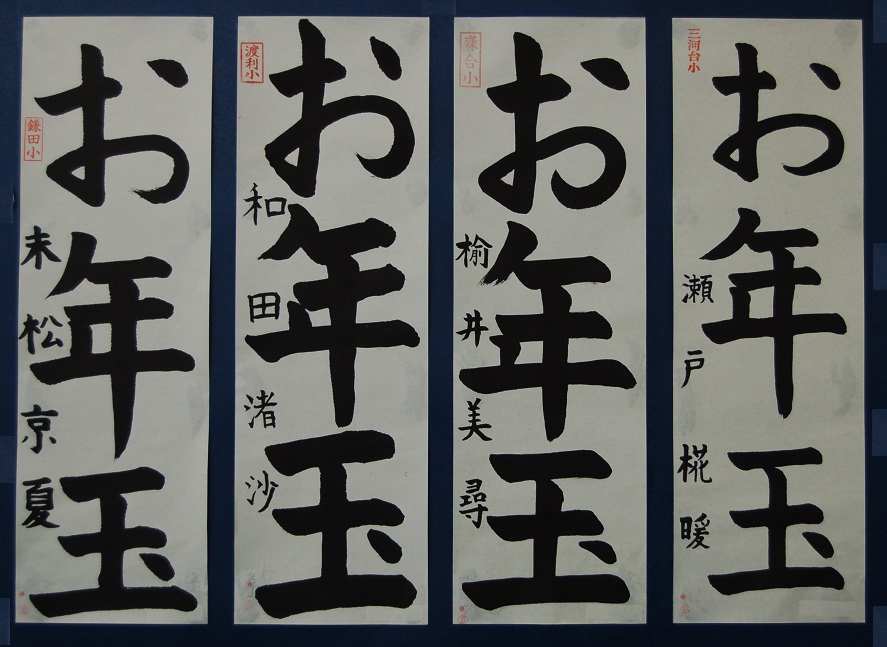 三河台小
お年玉
瀬戸椛暖
森合小
お年玉
楡井美尋
渡利小
お年玉
和田渚沙
鎌田小
お年玉
末松京夏